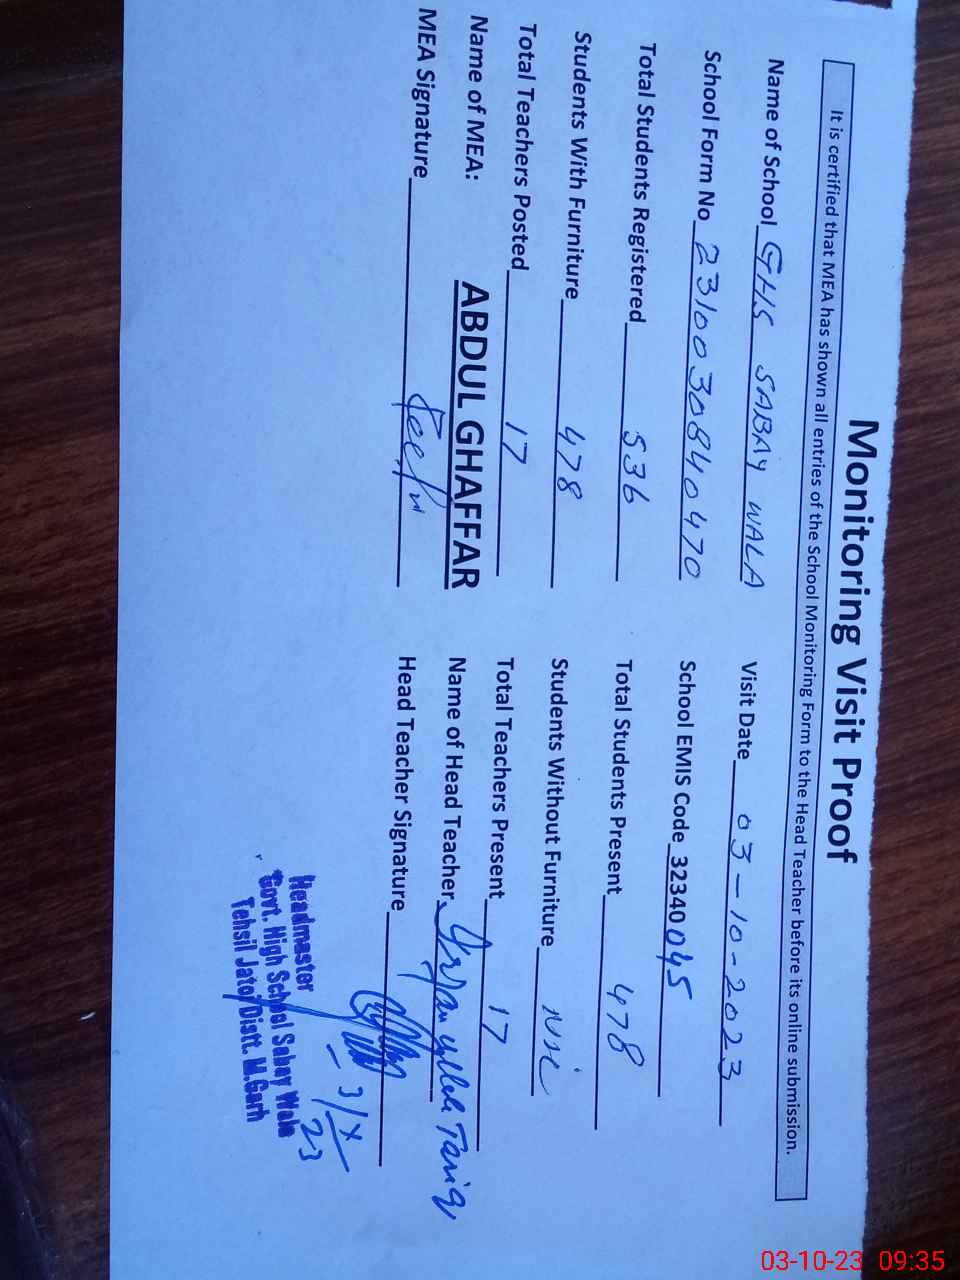 Monitoring Visit Proof
It is certified that MEA has shown all entries of the School Monitoring Form to the Head Teacher before its online submission.
Name of School GHS SABAY WALA Visit Date 03-10-2023
School Form No 2310030840470 School EMIS Code 32340045
Total Students Registered 536 Total Students Present 478
Students With Furniture 478 Students Without Furniture
Total Teachers Posted 17 Total Teachers Present 17
Name of MEA: ABDUL GHAFFAR Name of Head Teacher Tariq
MEA Signature Head Teacher Signature
Headmaster
Govt. High School Sabay Wala
Tehsil Jatoi Distt. M.Garh
3/X/23
03-10-23 09:35